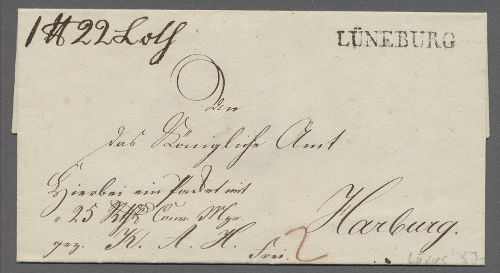 1 ℔ 22 Loth
LÜNEBURG
An
das Königliche Amt
Hierbei ein Packet mit
25 Rthlr Conv. Mze.
gez. K. A. H.
Harburg.
Frei.
2